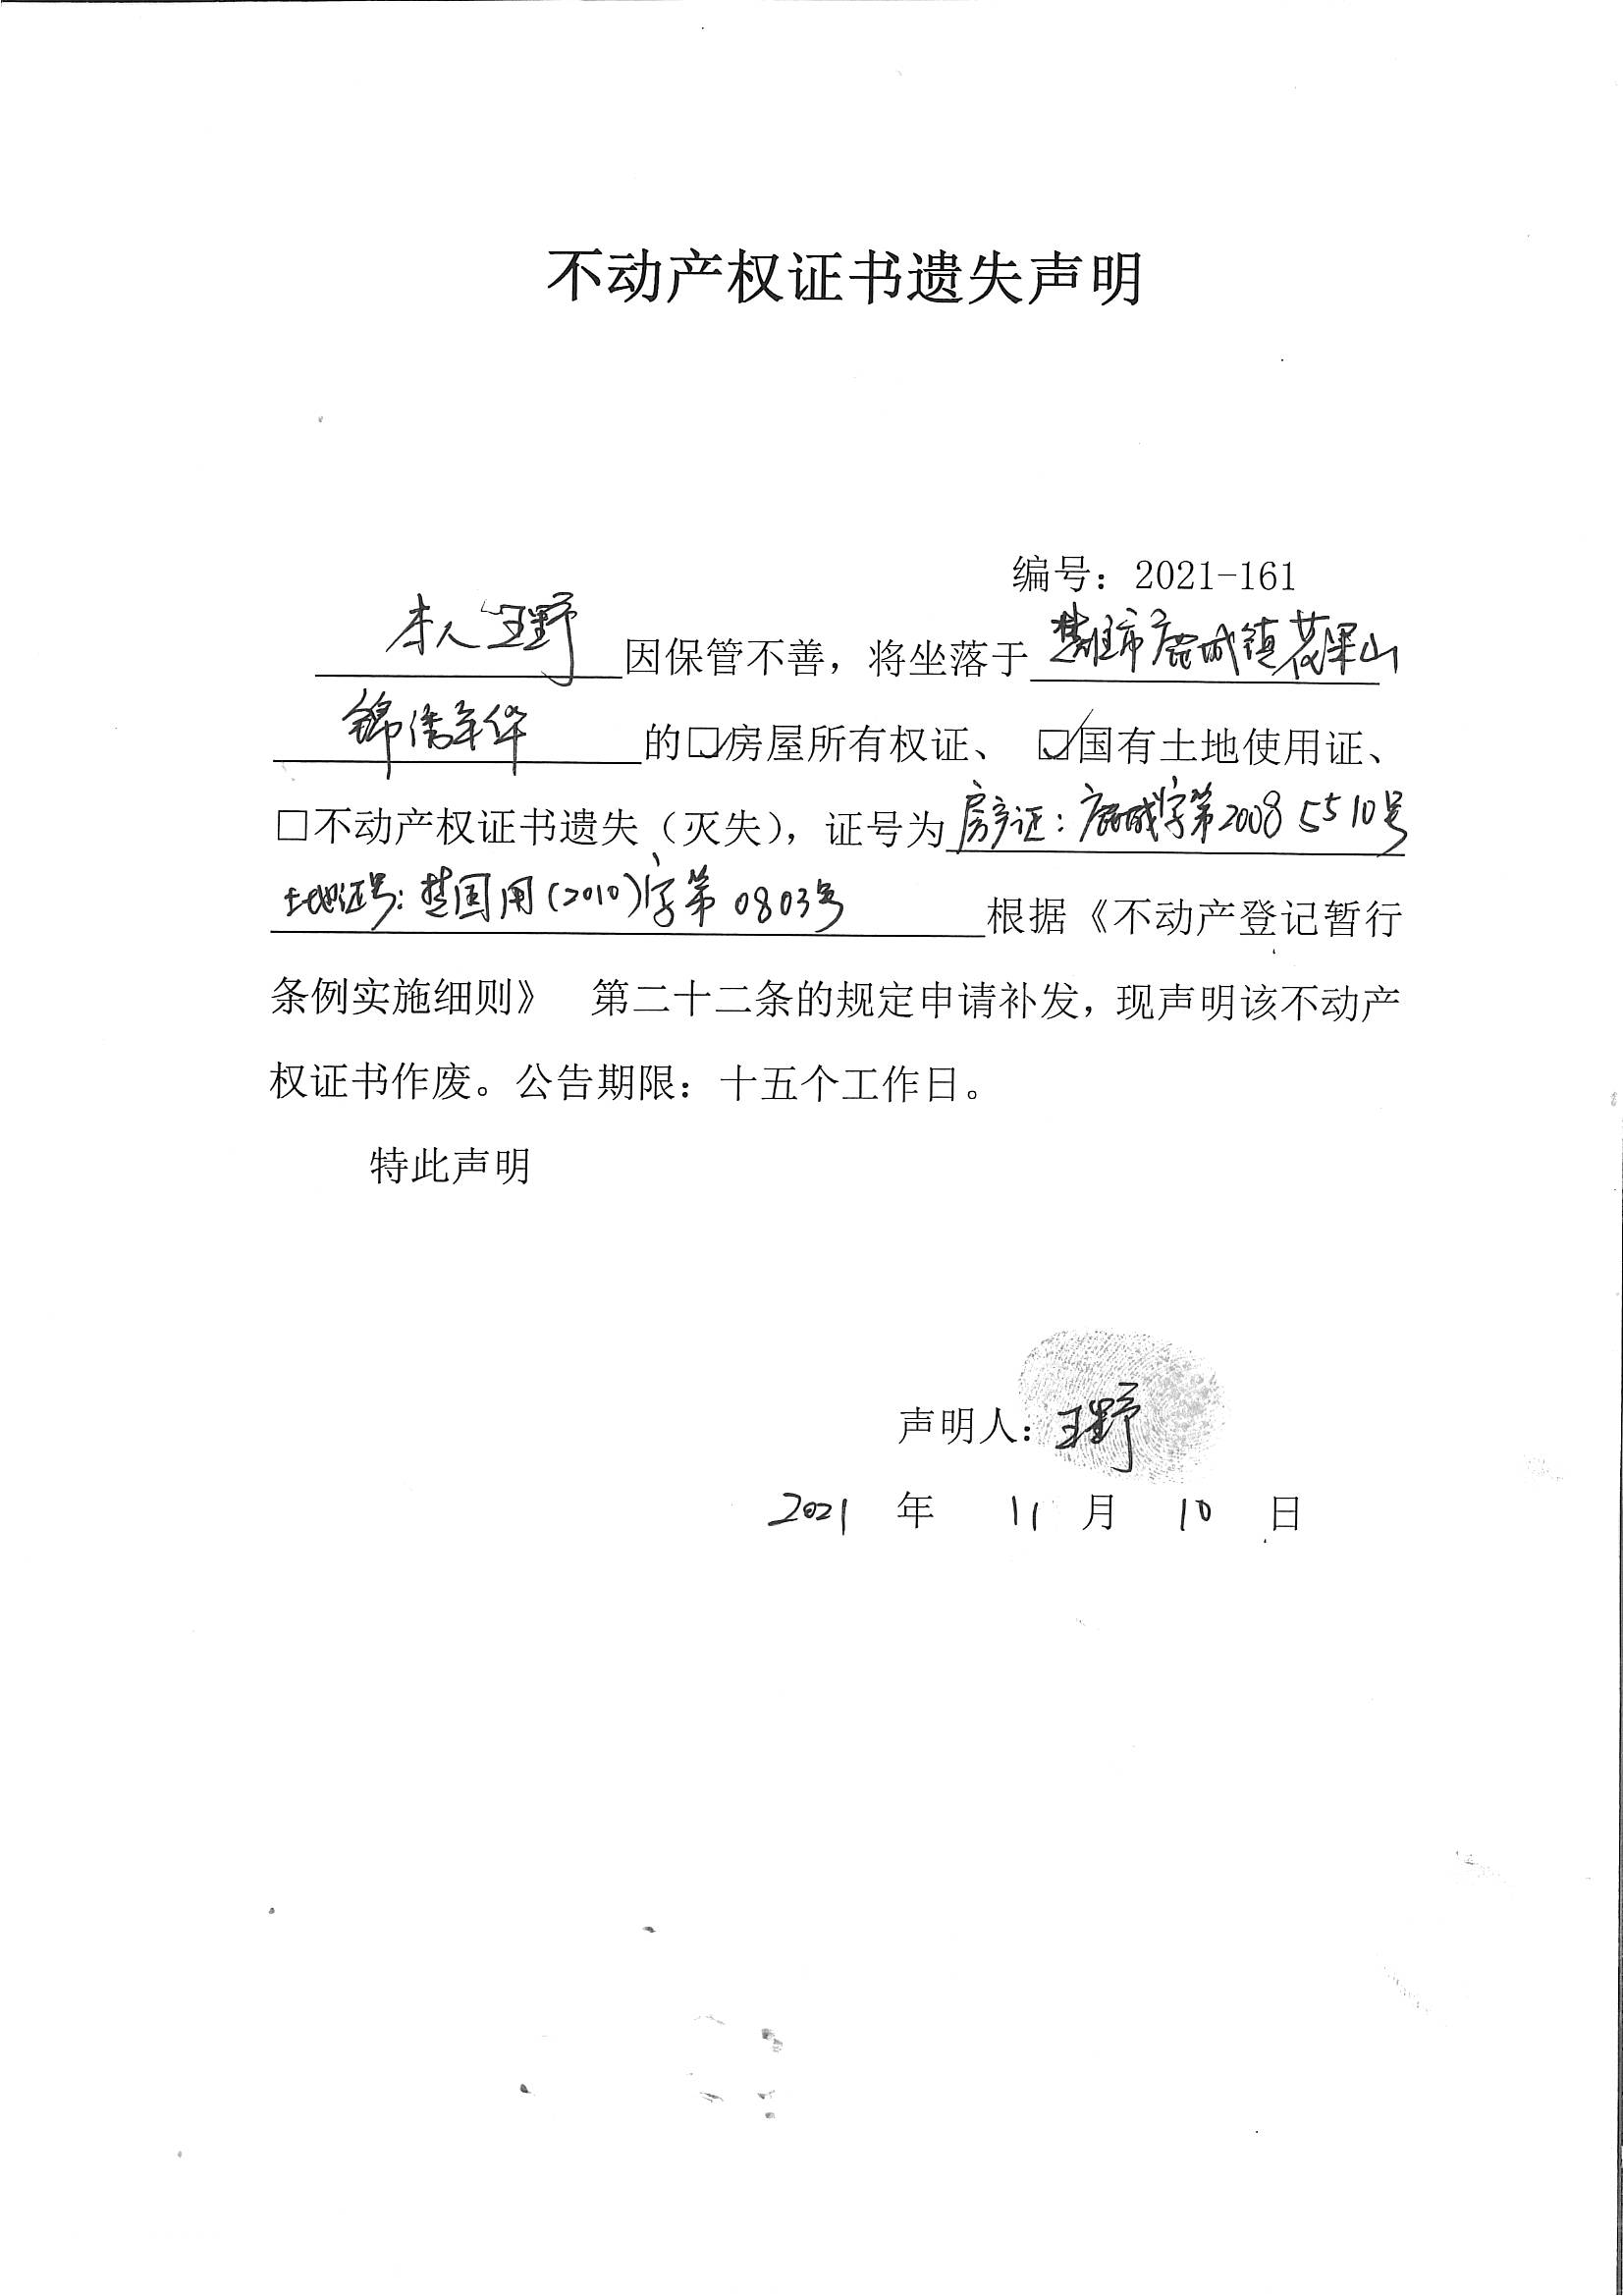 不动产权证书遗失声明
编号：2021-161
本人王野因保管不善，将坐落于楚雄市鹿城镇花果山
锦绣年华的☑房屋所有权证、☑国有土地使用证、
□不动产权证书遗失（灭失），证号为房产证：鹿城字第20085510号
土地证号：楚国用（2010）字第0803号根据《不动产登记暂行
条例实施细则》 第二十二条的规定申请补发，现声明该不动产
权证书作废。公告期限：十五个工作日。
特此声明
声明人：王野
2021 年 11 月 10 日